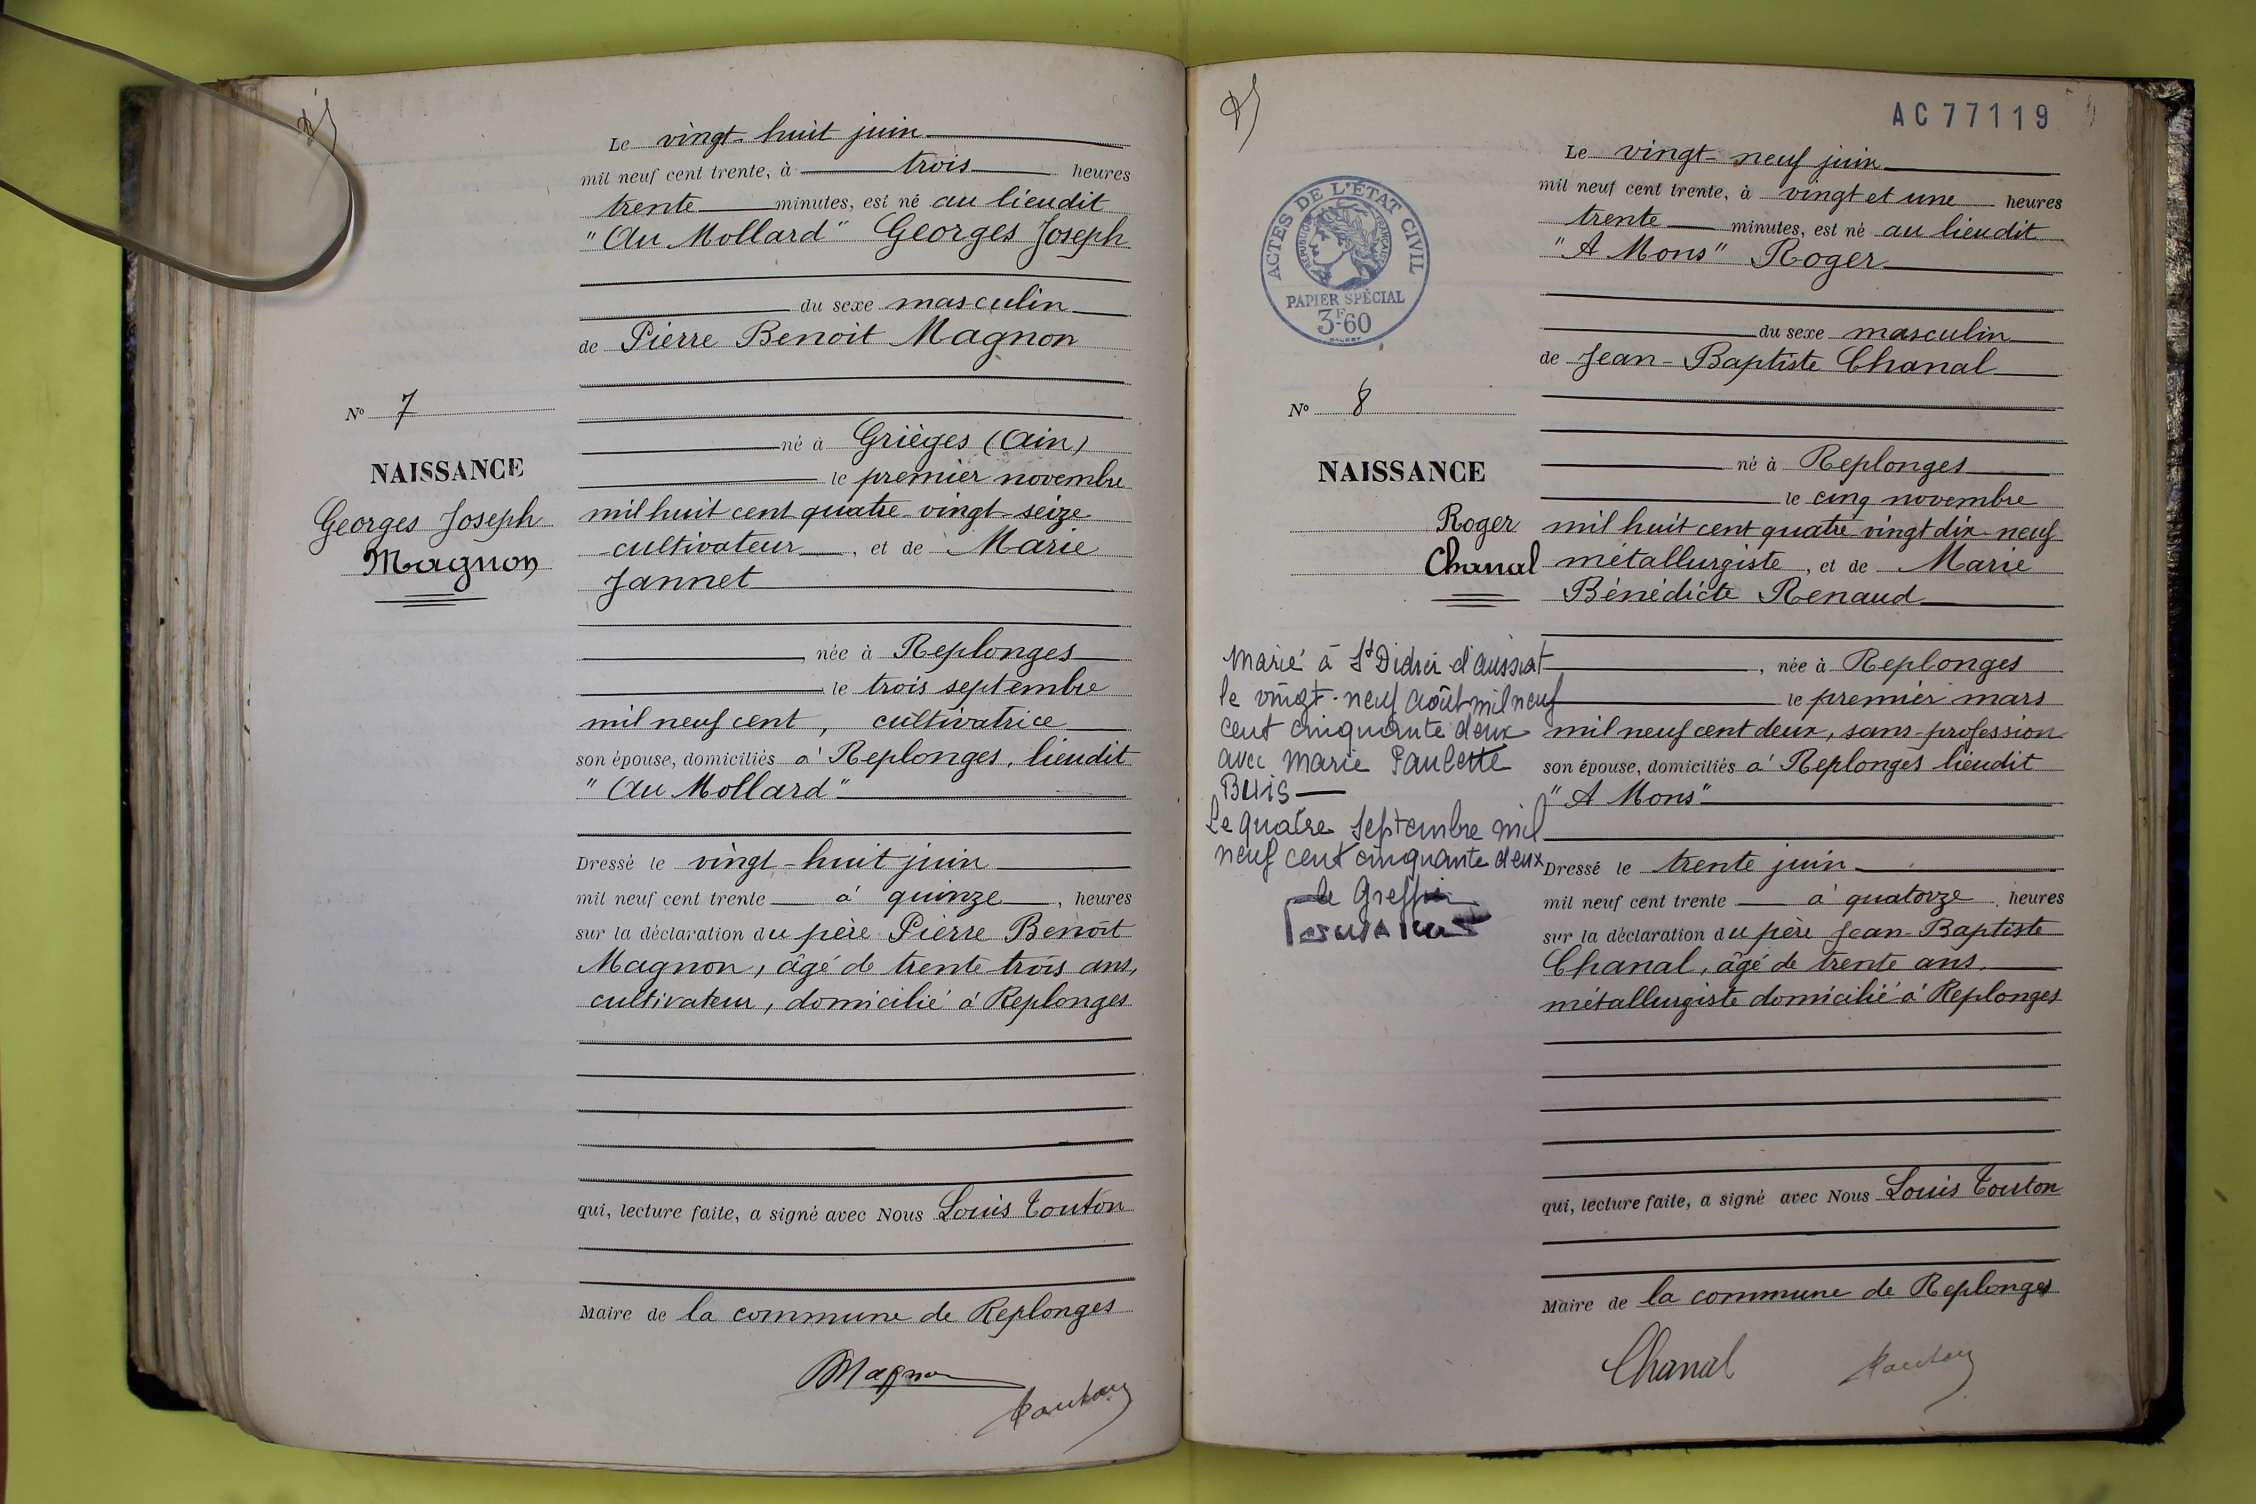 Le vingt-huit juin
mil neuf cent trente, à trois heures
trente minutes, est né au lieudit
"Au Mollard" Georges Joseph
du sexe masculin
de Pierre Benoit Magnon
né à Grièges (Ain)
le premier novembre
mil huit cent quatre-vingt-seize
cultivateur, et de Marie
Jannet
née à Replonges
le trois septembre
mil neuf cent, cultivatrice
son épouse, domiciliés à Replonges, lieudit
"Au Mollard"
Dressé le vingt-huit juin
mil neuf cent trente à quinze, heures
sur la déclaration du père Pierre Benoît
Magnon, âgé de trente-trois ans,
cultivateur, domicilié à Replonges
qui, lecture faite, a signé avec Nous Louis Touton
Maire de la commune de Replonges
Magnon
Touton
N° 7
NAISSANCE
Georges Joseph
Magnon
AC 77119
ACTES DE L'ÉTAT CIVIL
RÉPUBLIQUE FRANÇAISE
PAPIER SPÉCIAL
3F-60
N° 8
NAISSANCE
Roger
Chanal
Marié à St Didier d'aussiat
le vingt-neuf août mil neuf
cent cinquante deux
avec Marie Paulette
Buis
Le quatre septembre mil
neuf cent cinquante deux
Le Greffier
Le vingt-neuf juin
mil neuf cent trente, à vingt et une heures
trente minutes, est né au lieudit
"A Mons" Roger
du sexe masculin
de Jean-Baptiste Chanal
né à Replonges
le cinq novembre
mil huit cent quatre-vingt dix-neuf
métallurgiste, et de Marie
Bénédicte Renaud
, née à Replonges
le premier mars
mil neuf cent deux, sans profession
son épouse, domiciliés à Replonges lieudit
"A Mons"
Dressé le trente juin
mil neuf cent trente à quatorze, heures
sur la déclaration du père Jean-Baptiste
Chanal, âgé de trente ans,
métallurgiste domicilié à Replonges
qui, lecture faite, a signé avec Nous Louis Touton
Maire de la commune de Replonges
Chanal
Touton